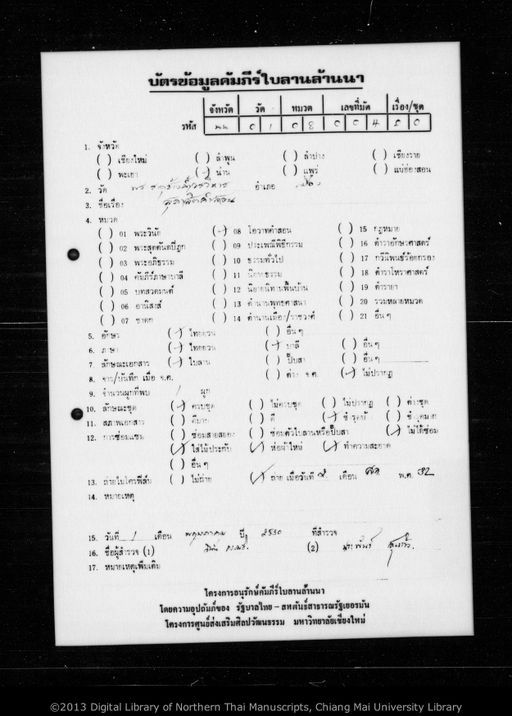 บัตรข้อมูลคัมภีร์ใบลานล้านนา
จังหวัด วัด หมวด เลขที่มัด เรื่อง/ชุด
รหัส 0 1 0 8 0 0 4 5 0
1. จังหวัด
( ) เชียงใหม่ ( ) ลำพูน ( ) ลำปาง ( ) เชียงราย
( ) พะเยา (✓) น่าน ( ) แพร่ ( ) แม่ฮ่องสอน
2. วัด อำเภอ เมือง
3. ชื่อเรื่อง
4. หมวด
( ) 01 พระวินัย (✓) 08 โอวาทคำสอน ( ) 15 กฎหมาย
( ) 02 พระสุตตันตปิฎก ( ) 09 ประเพณีพิธีกรรม ( ) 16 ตำราอักษรศาสตร์
( ) 03 พระอภิธรรม ( ) 10 ธรรมทั่วไป ( ) 17 กวีนิพนธ์ร้อยกรอง
( ) 04 คัมภีร์ภาษาบาลี ( ) 11 นิยายธรรม ( ) 18 ตำราโหราศาสตร์
( ) 05 บทสวดมนต์ ( ) 12 นิยายนิทานพื้นบ้าน ( ) 19 ตำรายา
( ) 06 อานิสงส์ ( ) 13 ตำนานพุทธศาสนา ( ) 20 รวมหลายหมวด
( ) 07 ชาดก ( ) 14 ตำนานเมือง/ราชวงศ์ ( ) 21 อื่น ๆ
5. อักษร (✓) ไทยยวน ( ) อื่น ๆ
6. ภาษา (✓) ไทยยวน (✓) บาลี ( ) อื่น ๆ
7. ลักษณะเอกสาร (✓) ใบลาน ( ) ปั๊บสา ( ) อื่น ๆ
8. จาร/บันทึก เมื่อ จ.ศ. ( ) ต่าง จ.ศ. (✓) ไม่ปรากฏ
9. จำนวนผูกที่พบ 1 ผูก
10. ลักษณะชุด (✓) ครบชุด ( ) ไม่ครบชุด ( ) ไม่ปรากฏ ( ) ต่างชุด
11. สภาพเอกสาร ( ) ดีมาก ( ) ดี (✓) ชำรุด ( )
12. การซ่อมแซม ( ) ซ่อมสายสยอง ( ) ซ่อมตัวใบลานหรือปั๊บสา (✓) ไม่ได้ซ่อม
(✓) ใส่ไม้ประกับ (✓) ห่อผ้าใหม่ (✓) ทำความสะอาด
( ) อื่น ๆ
13. ถ่ายไมโครฟิล์ม ( ) ไม่ถ่าย (✓) ถ่าย เมื่อวันที่ เดือน พ.ศ. 32
14. หมายเหตุ
15. วันที่ 1 เดือน พฤษภาคม ปี 2530 ที่สำรวจ
16. ชื่อผู้สำรวจ (1) (2)
17. หมายเหตุเพิ่มเติม
โครงการอนุรักษ์คัมภีร์ใบลานล้านนา
โดยความอุปถัมภ์ของ รัฐบาลไทย - สหพันธ์สาธารณรัฐเยอรมัน
โครงการศูนย์ส่งเสริมศิลปวัฒนธรรม มหาวิทยาลัยเชียงใหม่
©2013 Digital Library of Northern Thai Manuscripts, Chiang Mai University Library